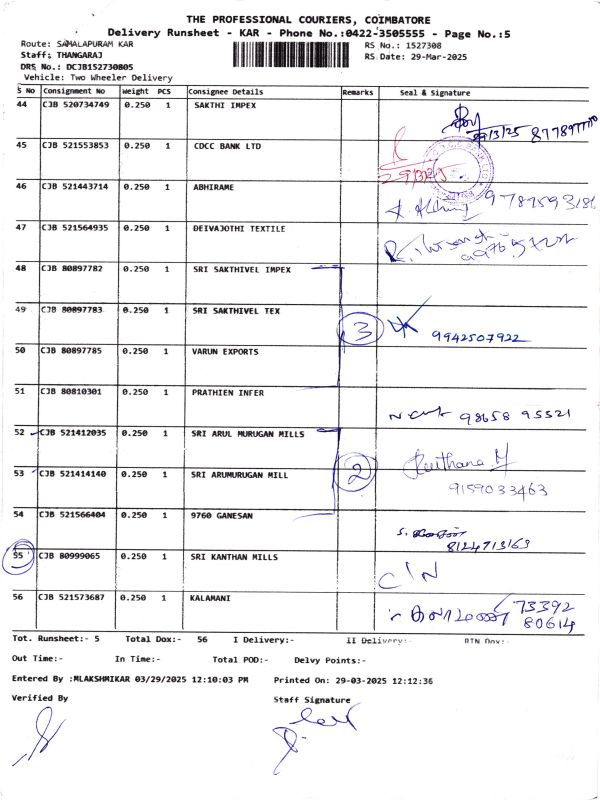 THE PROFESSIONAL COURIERS, COIMBATORE
Delivery Runsheet - KAR - Phone No.:0422-3505555 - Page No.:5
Route: SAMALAPURAM KAR
RS No.: 1527308
Staff: THANGARAJ
RS Date: 29-Mar-2025
DRS No.: DCJB152730805
Vehicle: Two Wheeler Delivery
S No Consignment No Weight PCS Consignee Details Remarks Seal & Signature
44 CJB 520734749 0.250 1 SAKTHI IMPEX
45 CJB 521553853 0.250 1 CDCC BANK LTD
29/3/25
46 CJB 521443714 0.250 1 ABHIRAME
47 CJB 521564935 0.250 1 DEIVAJOTHI TEXTILE
48 CJB 80897782 0.250 1 SRI SAKTHIVEL IMPEX
49 CJB 80897783 0.250 1 SRI SAKTHIVEL TEX
3 9942507922
50 CJB 80897785 0.250 1 VARUN EXPORTS
51 CJB 80810301 0.250 1 PRATHIEN INFER
98658 95521
52 CJB 521412035 0.250 1 SRI ARUL MURUGAN MILLS
53 CJB 521414140 0.250 1 SRI ARUMURUGAN MILL
2 9159033463
54 CJB 521566404 0.250 1 9760 GANESAN
8124713163
55 CJB 80999065 0.250 1 SRI KANTHAN MILLS
C/N
56 CJB 521573687 0.250 1 KALAMANI
73392
80614
Tot. Runsheet:- 5 Total Dox:- 56 I Delivery:- II Delivery:- RTN Dox:-
Out Time:- In Time:- Total POD:- Delvy Points:-
Entered By :MLAKSHMIKAR 03/29/2025 12:10:03 PM Printed On: 29-03-2025 12:12:36
Verified By Staff Signature